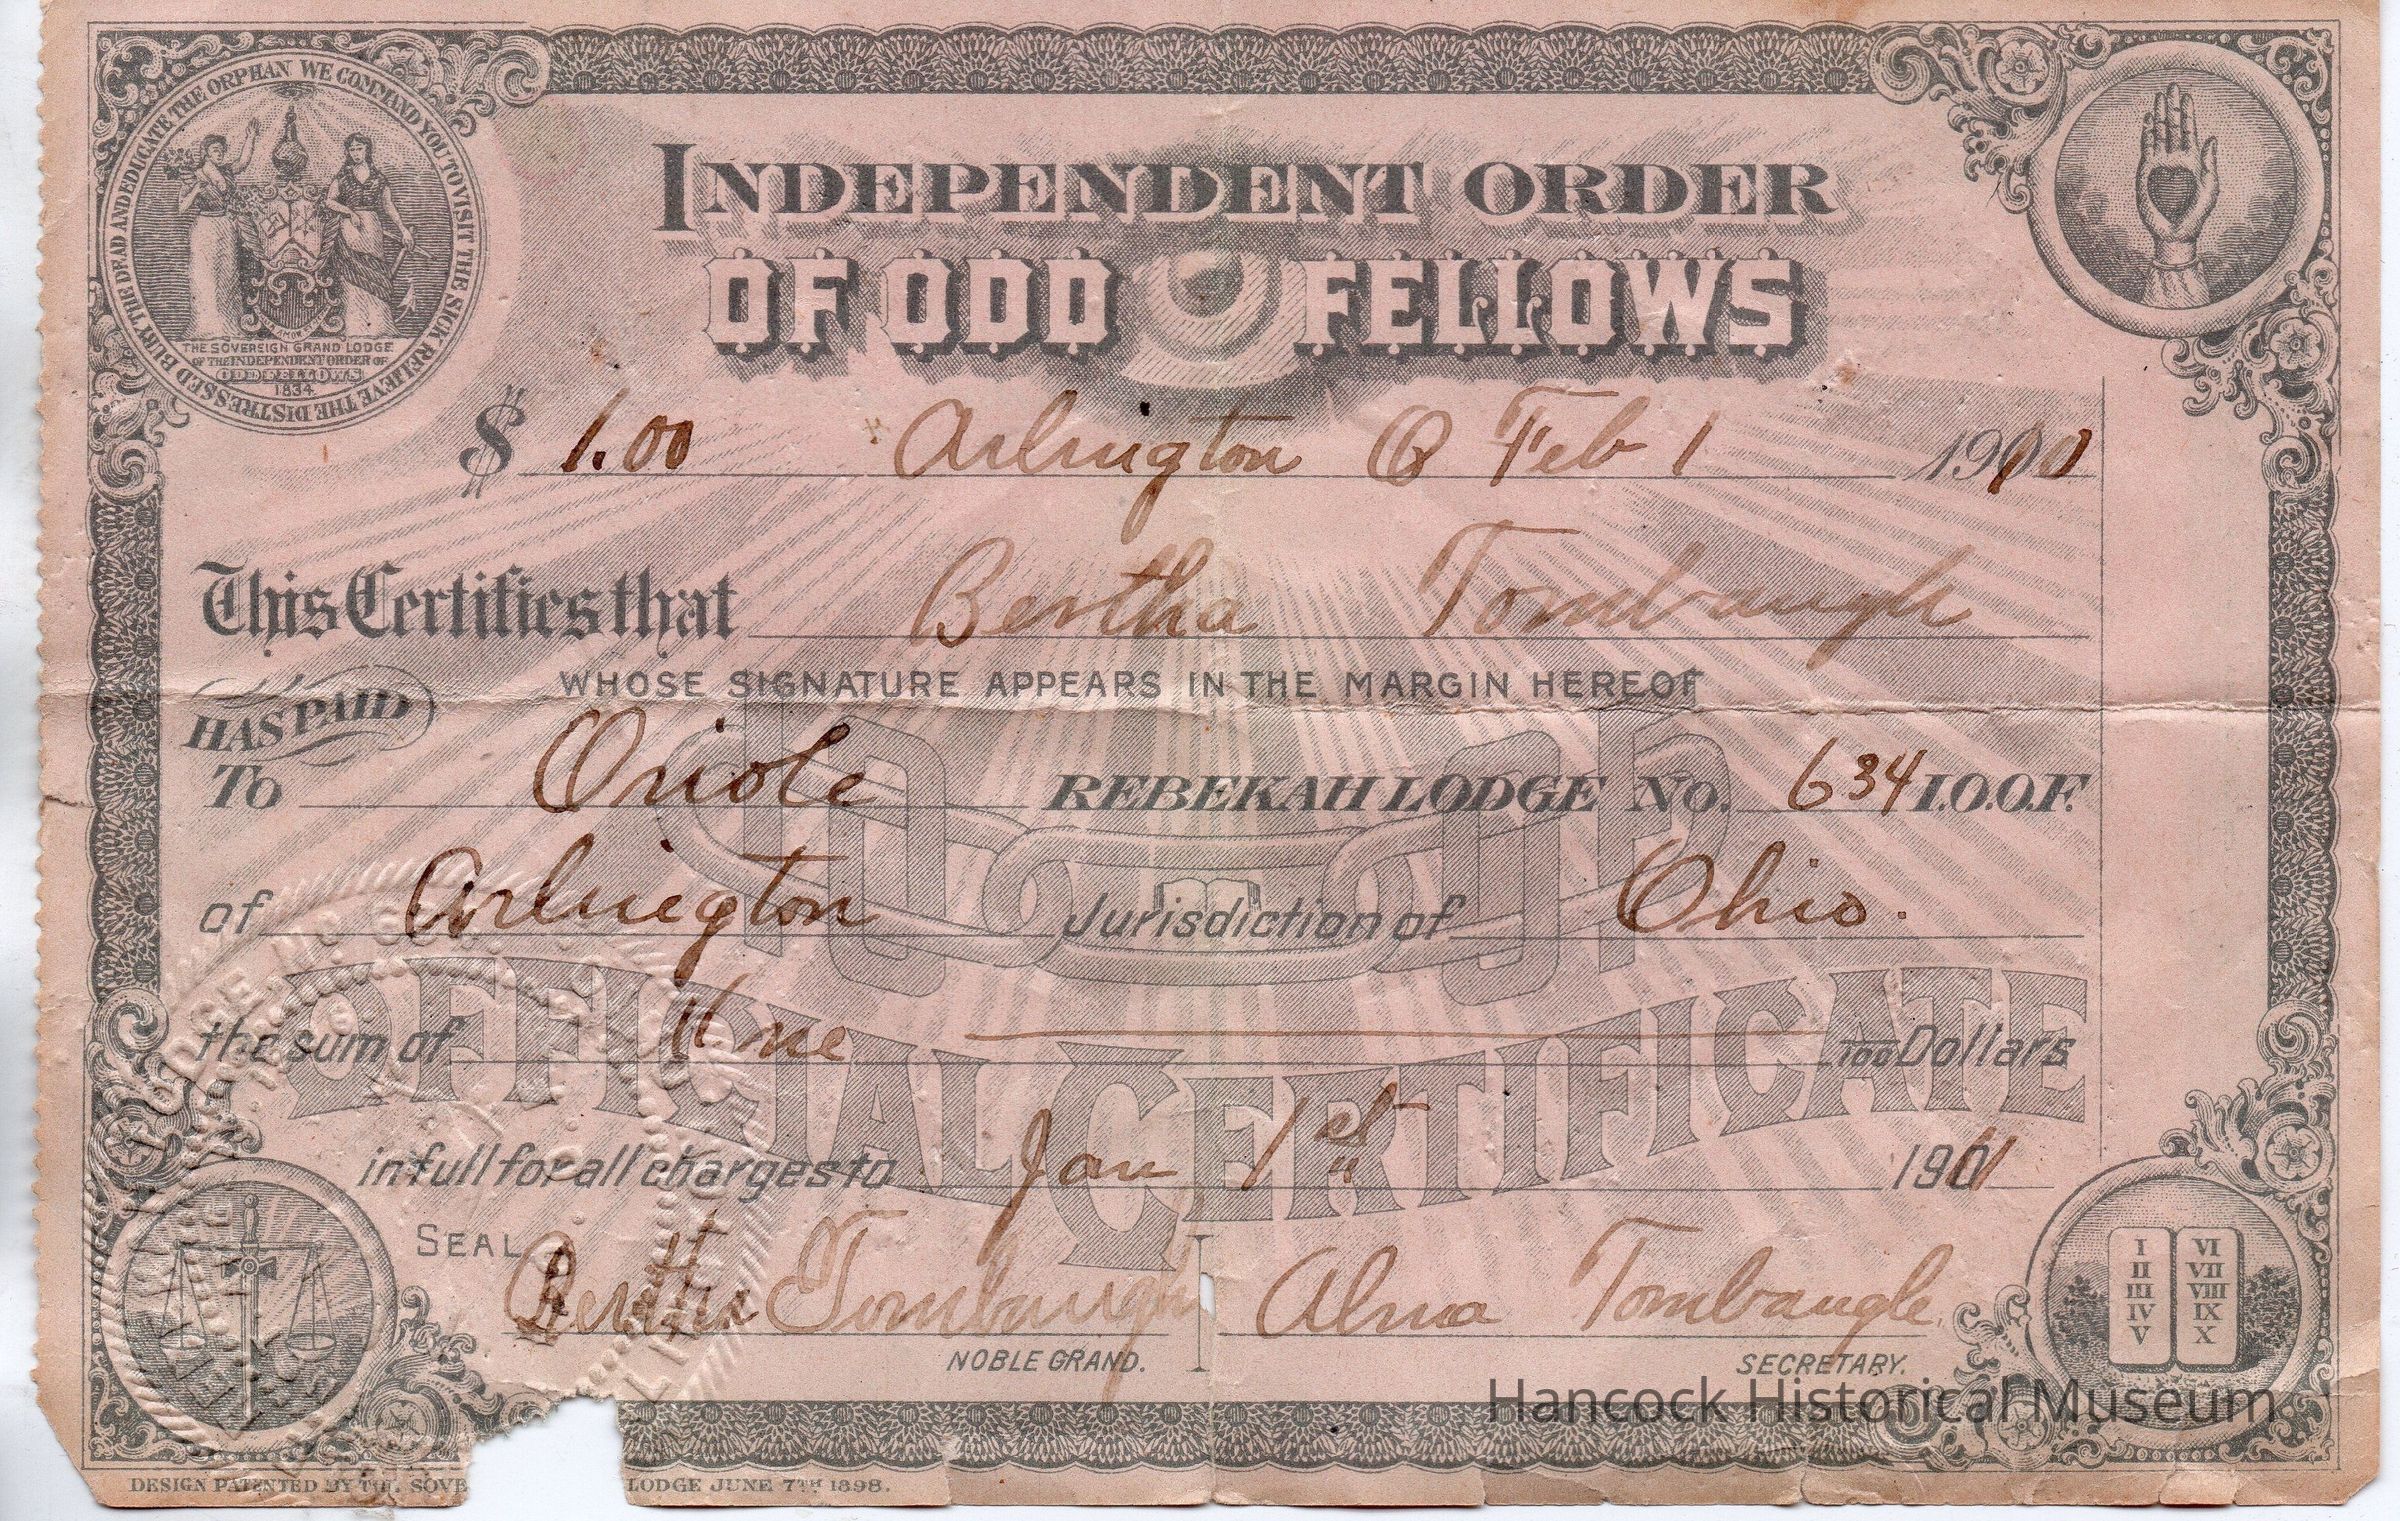 BURY THE DEAD AND EDUCATE THE ORPHAN WE COMMAND YOU TO VISIT THE SICK RELIEVE THE DISTRESSED
THE SOVEREIGN GRAND LODGE
OF THE INDEPENDENT ORDER OF
ODD FELLOWS
1834
INDEPENDENT ORDER
OF ODD FELLOWS
$ 1.00 Arlington O Feb 1 1910
This Certifies that Bertha Tombaugh
WHOSE SIGNATURE APPEARS IN THE MARGIN HEREOF
HAS PAID
TO Oriole REBEKAH LODGE NO. 634 I.O.O.F.
of Arlington Jurisdiction of Ohio.
the sum of One 100 Dollars
OFFICIAL CERTIFICATE
in full for all charges to Jan 1st 1911
SEAL
Bertha Tombaugh Alma Tombaugh
NOBLE GRAND. SECRETARY.
I II III IV V
VI VII VIII IX X
Hancock Historical Museum
DESIGN PATENTED BY THE SOVE LODGE JUNE 7TH 1898.